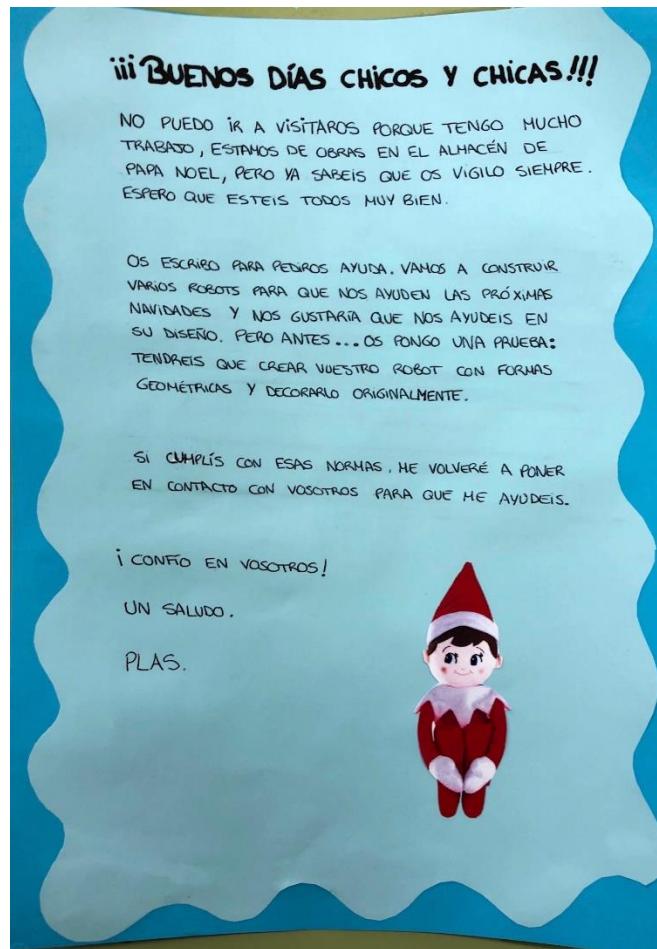 ¡¡¡BUENOS DÍAS CHICOS Y CHICAS!!!
NO PUEDO IR A VISITAROS PORQUE TENGO MUCHO
TRABAJO, ESTAMOS DE OBRAS EN EL ALMACÉN DE
PAPA NOEL, PERO YA SABEIS QUE OS VIGILO SIEMPRE.
ESPERO QUE ESTEIS TODOS MUY BIEN.
OS ESCRIBO PARA PEDIROS AYUDA. VAMOS A CONSTRUIR
VARIOS ROBOTS PARA QUE NOS AYUDEN LAS PRÓXIMAS
NAVIDADES Y NOS GUSTARÍA QUE NOS AYUDEIS EN
SU DISEÑO. PERO ANTES... OS PONGO UNA PRUEBA:
TENDREIS QUE CREAR VUESTRO ROBOT CON FORMAS
GEOMÉTRICAS Y DECORARLO ORIGINALMENTE.
SI CUMPLÍS CON ESAS NORMAS, ME VOLVERÉ A PONER
EN CONTACTO CON VOSOTROS PARA QUE ME AYUDEIS.
¡CONFÍO EN VOSOTROS!
UN SALUDO.
PLAS.